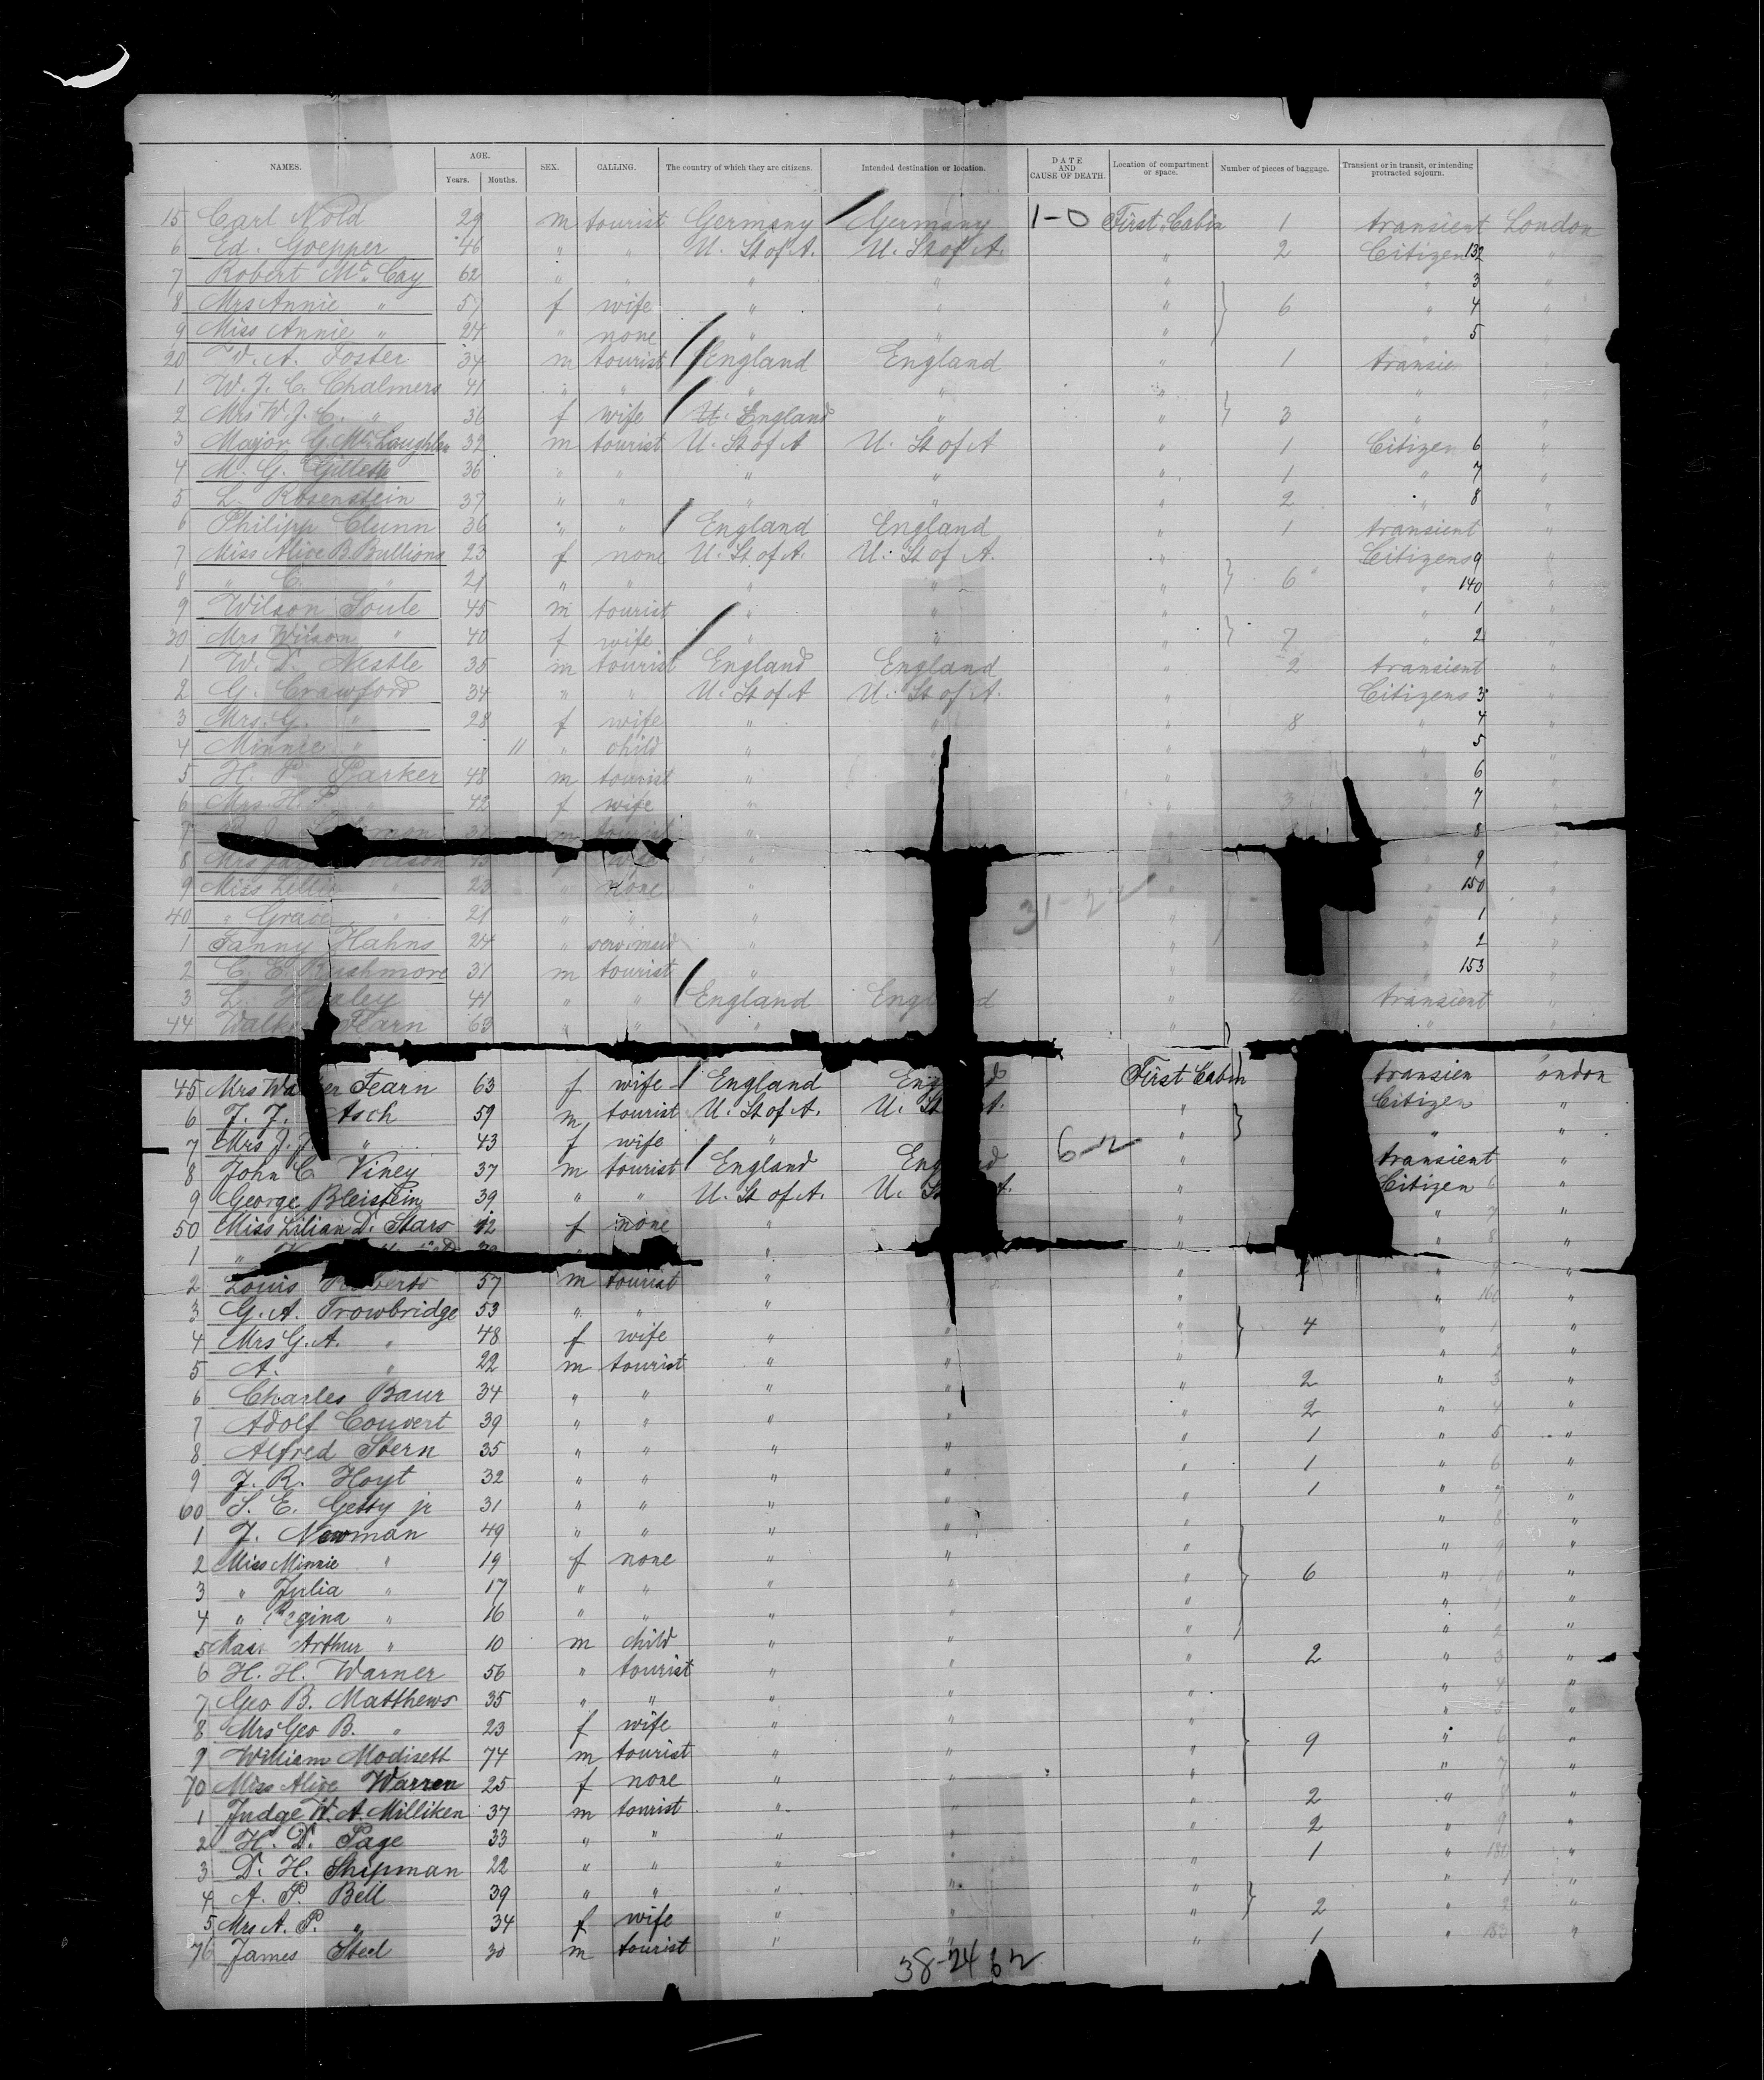 NAMES. AGE. SEX. CALLING. The country of which they are citizens. Intended destination or location. DATE AND CAUSE OF DEATH. Location of compartment or space. Number of pieces of baggage. Transient or in transit, or intending protracted sojourn.
Years. Months.
15 Carl Nold 29 m tourist Germany Germany 1-0 First Cabin 1 transient London
6 Ed. Goepper 46 " " U. St of A. U. St of A. " 2 Citizen 132 "
7 Robert Mc. Cay 62 " " " " " " 3 "
8 Mrs Annie " 51 f wife " " " 6 " 4 "
9 Miss Annie " 24 " none " " " " 5 "
20 W. A. Foster 34 m tourist England England " 1 transien "
1 W. J. C. Chalmers 41 " " " " " " "
2 Mrs W. J. C. " 36 f wife U. England " " 3 " "
3 Major G. Mc Laughlin 32 m tourist U. St of A U. St of A " 1 Citizen 6 "
4 M. G. Gillett 36 " " " " " 1 " 7 "
5 L. Rosenstein 37 " " " " " 2 " 8 "
6 Philipp Clunn 36 " " England England " 1 transient "
7 Miss Alice B. Bullions 23 f none U. St. of A. U. St of A. " Citizens 9 "
8 " C. " 21 " " " " " 6 " 140 "
9 Wilson Soule 45 m tourist " " " " 1 "
30 Mrs Wilson " 40 f wife " " " 7 " 2 "
1 W. D. Nestle 35 m tourist England England " 2 transient "
2 G. Crawford 34 " " U. St of A U. St of A. " Citizens 3 "
3 Mrs. G. " 28 f wife " " " 8 " 4 "
4 Minnie " 11 " child " " " " 5 "
5 H. P. Parker 48 m tourist " " " " 6 "
6 Mrs. H. P. " 42 f wife " " 3 " 7 "
7 m tourist " " 8
8 Mrs wife " " 9 "
9 Miss Lillie " 23 " none " " " 150 "
40 " Grace " 21 " " " 31-22 " " 1 "
1 Fanny Hahns 24 " serv. maid " " " 2 "
2 C. E. Rushmore 31 m tourist " " " 153 "
3 L. 41 " " England Eng d " transient "
44 Walk Fearn 63 " " " " " "
45 Mrs Wa er Fearn 63 f wife England Eng d First Cabin transien ondon
6 J. J. Asch 59 m tourist U. St of A. U. St A. " Citizen "
7 Mrs J. J. " 43 f wife " 6-2 " " "
8 John C Viney 37 m tourist England Eng d " transient "
9 George Bleistein 39 " " U. St of A. U. St A. " Citizen 6 "
50 Miss Lilian D. Stars 42 f none " " " 7 "
1 " " " " 8 "
2 Louis Roberts 57 m tourist " " " "
3 G. A. Trowbridge 53 " " " " " 160 "
4 Mrs G. A. " 48 f wife " " " 4 " 1 "
5 A. " 22 m tourist " " " " 2 "
6 Charles Baur 34 " " " " " 2 " 3 "
7 Adolf Couvert 39 " " " " " 2 " 4 "
8 Alfred Stern 35 " " " " " 1 " 5 "
9 J. R. Hoyt 32 " " " " " 1 " 6 "
60 S. E. Getty jr 31 " " " " " 1 " 7 "
1 J. Newman 49 " " " " " " 8 "
2 Miss Minnie " 19 f none " " " " 9 "
3 " Julia " 17 " " " " " 6 " "
4 " Regina " 16 " " " " " " 1 "
5 Mast Arthur " 10 m child " " " " 2 "
6 H. H. Warner 56 " tourist " " " 2 " 3 "
7 Geo B. Matthews 35 " " " " " " 4 "
8 Mrs Geo B. " 23 f wife " " " " 5 "
9 William Modisett 74 m tourist " " " 9 " 6 "
70 Miss Alice Warren 25 f none " " " " 7 "
1 Judge W. A. Milliken 37 m tourist " " " 2 " 8 "
2 H. D. Page 33 " " " " " 2 " 9 "
3 D. H. Shipman 22 " " " " " 1 " 180 "
4 A. P. Bell 39 " " " " " " 1 "
5 Mrs A. P. " 34 f wife " " " 2 " 2 "
76 James Steel 30 m tourist " " " 1 " 183 "
38-24 62